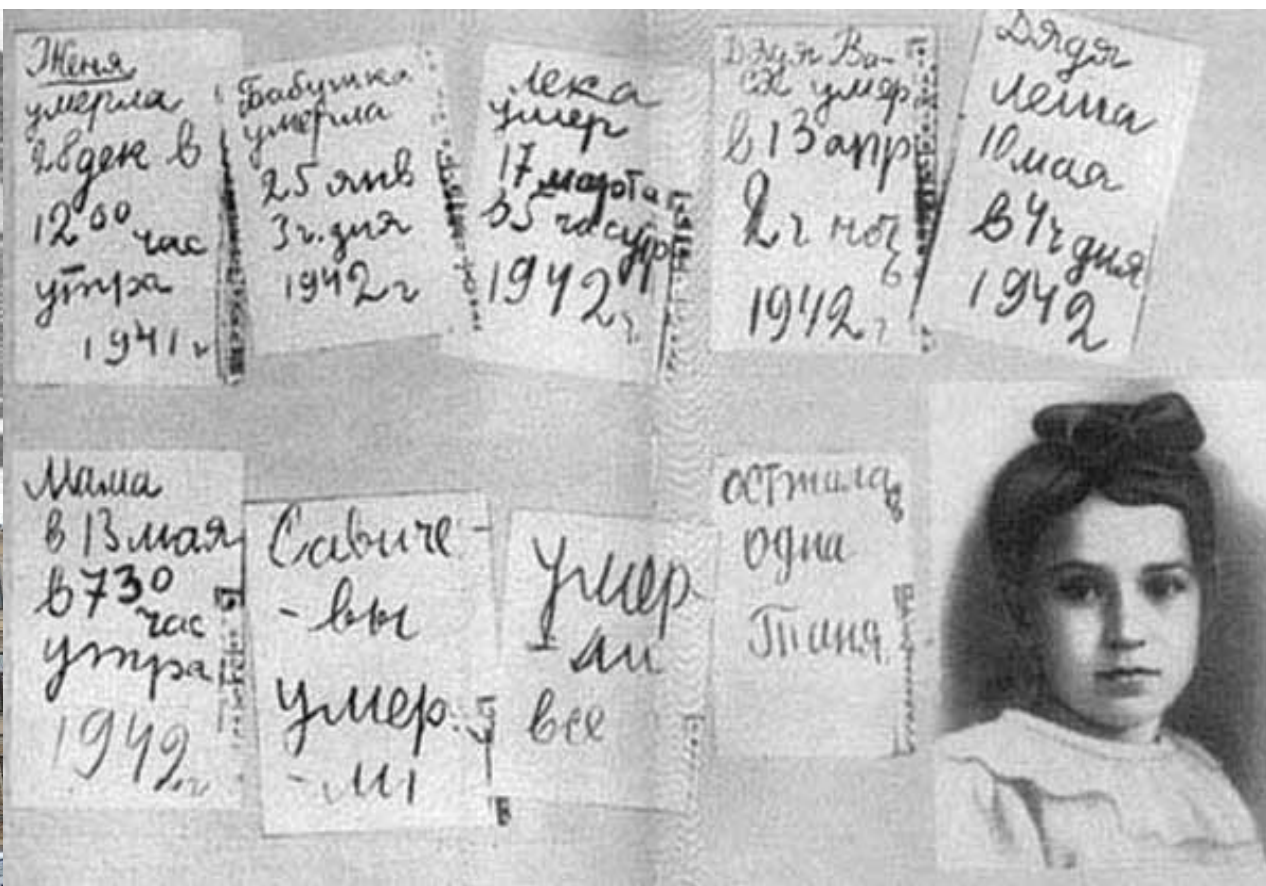 Женя
умерла
28 дек в
12 00 час
утра
1941 г
Бабушка
умерла
25 янв
3 ч. дня
1942 г
Лека
умер
17 марта
в 5 час утр
1942 г.
Дядя Ва-
ся умер
в 13 апр
2 ч ночь
1942 г
Дядя
Леша
10 мая
в 4 ч дня
1942
Мама
в 13 мая
в 7 30
час
утра
1942 г
Савиче-
-вы
умер.
-ли
Умер
-ли
все
осталась
одна
Таня.